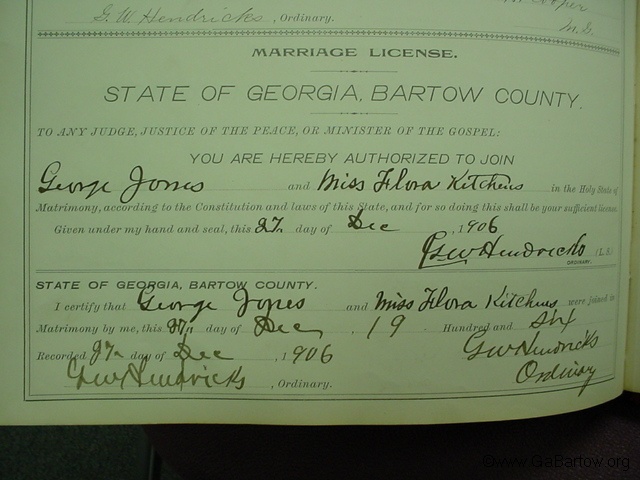 G. W. Hendricks, Ordinary. M. G.
MARRIAGE LICENSE.
STATE OF GEORGIA, BARTOW COUNTY.
TO ANY JUDGE, JUSTICE OF THE PEACE, OR MINISTER OF THE GOSPEL:
YOU ARE HEREBY AUTHORIZED TO JOIN
George Jones and Miss Flora Kitchens in the Holy State of
Matrimony, according to the Constitution and laws of this State, and for so doing this shall be your sufficient license.
Given under my hand and seal, this 27 day of Dec, 1906
GW Hendricks (L. S.)
ORDINARY.
STATE OF GEORGIA, BARTOW COUNTY.
I certify that George Jones and Miss Flora Kitchens were joined in
Matrimony by me, this 27 day of Dec, 19 Hundred and Six
Recorded 27 day of Dec, 1906 GW Hendricks
GW Hendricks, Ordinary. Ordinary
©www.GaBartow.org